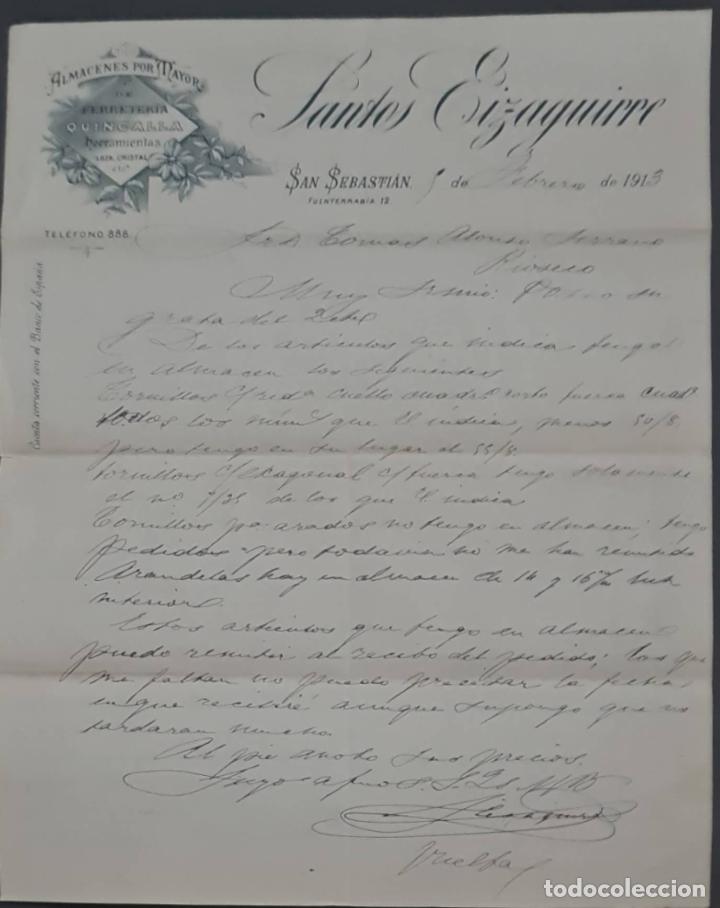 ALMACENES POR MAYOR
DE
FERRETERÍA
QUINCALLA
Herramientas
LOZA, CRISTAL
ETC.
Santos Eizaguirre
SAN SEBASTIÁN, 5 de Febrero de 1913
FUENTERRABÍA 12.
TELÉFONO 888.
Cuenta corriente con el Banco de España
Sr D Tomas Alonso Serrano
Rioseco
Muy Sr mio: su
grata del 2
De los articulos que indica tengo
en almacen los siguientes
Tornillos cuello cuadrº corto tuerca cuadº
todos los que V indica, menos 50/8
pero tengo en su lugar el 55/8
tornillos c/exagonal c/ tuerca tengo solamente
el no 7/25 de los que V indica
Tornillos pa arados no tengo en almacen; tengo
pedidos pero todavia no me han remitido
Arandelas hay en almacen de 14 y 16 m/m
interior
Estos articulos que tengo en almacen
puedo remitir al recibo del pedido; los que
me faltan no puedo precisar la fecha
en que recibiré aunque supongo que no
tardaran mucho.
Al pie anoto sus precios.
Suyo afmo S.S.
Eizaguirre
Vuelta
todocoleccion